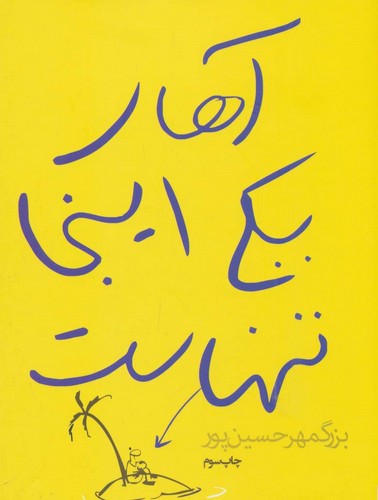 آهای
یکی اینجا
تنهاست
بزرگمهر حسین‌پور
چاپ سوم